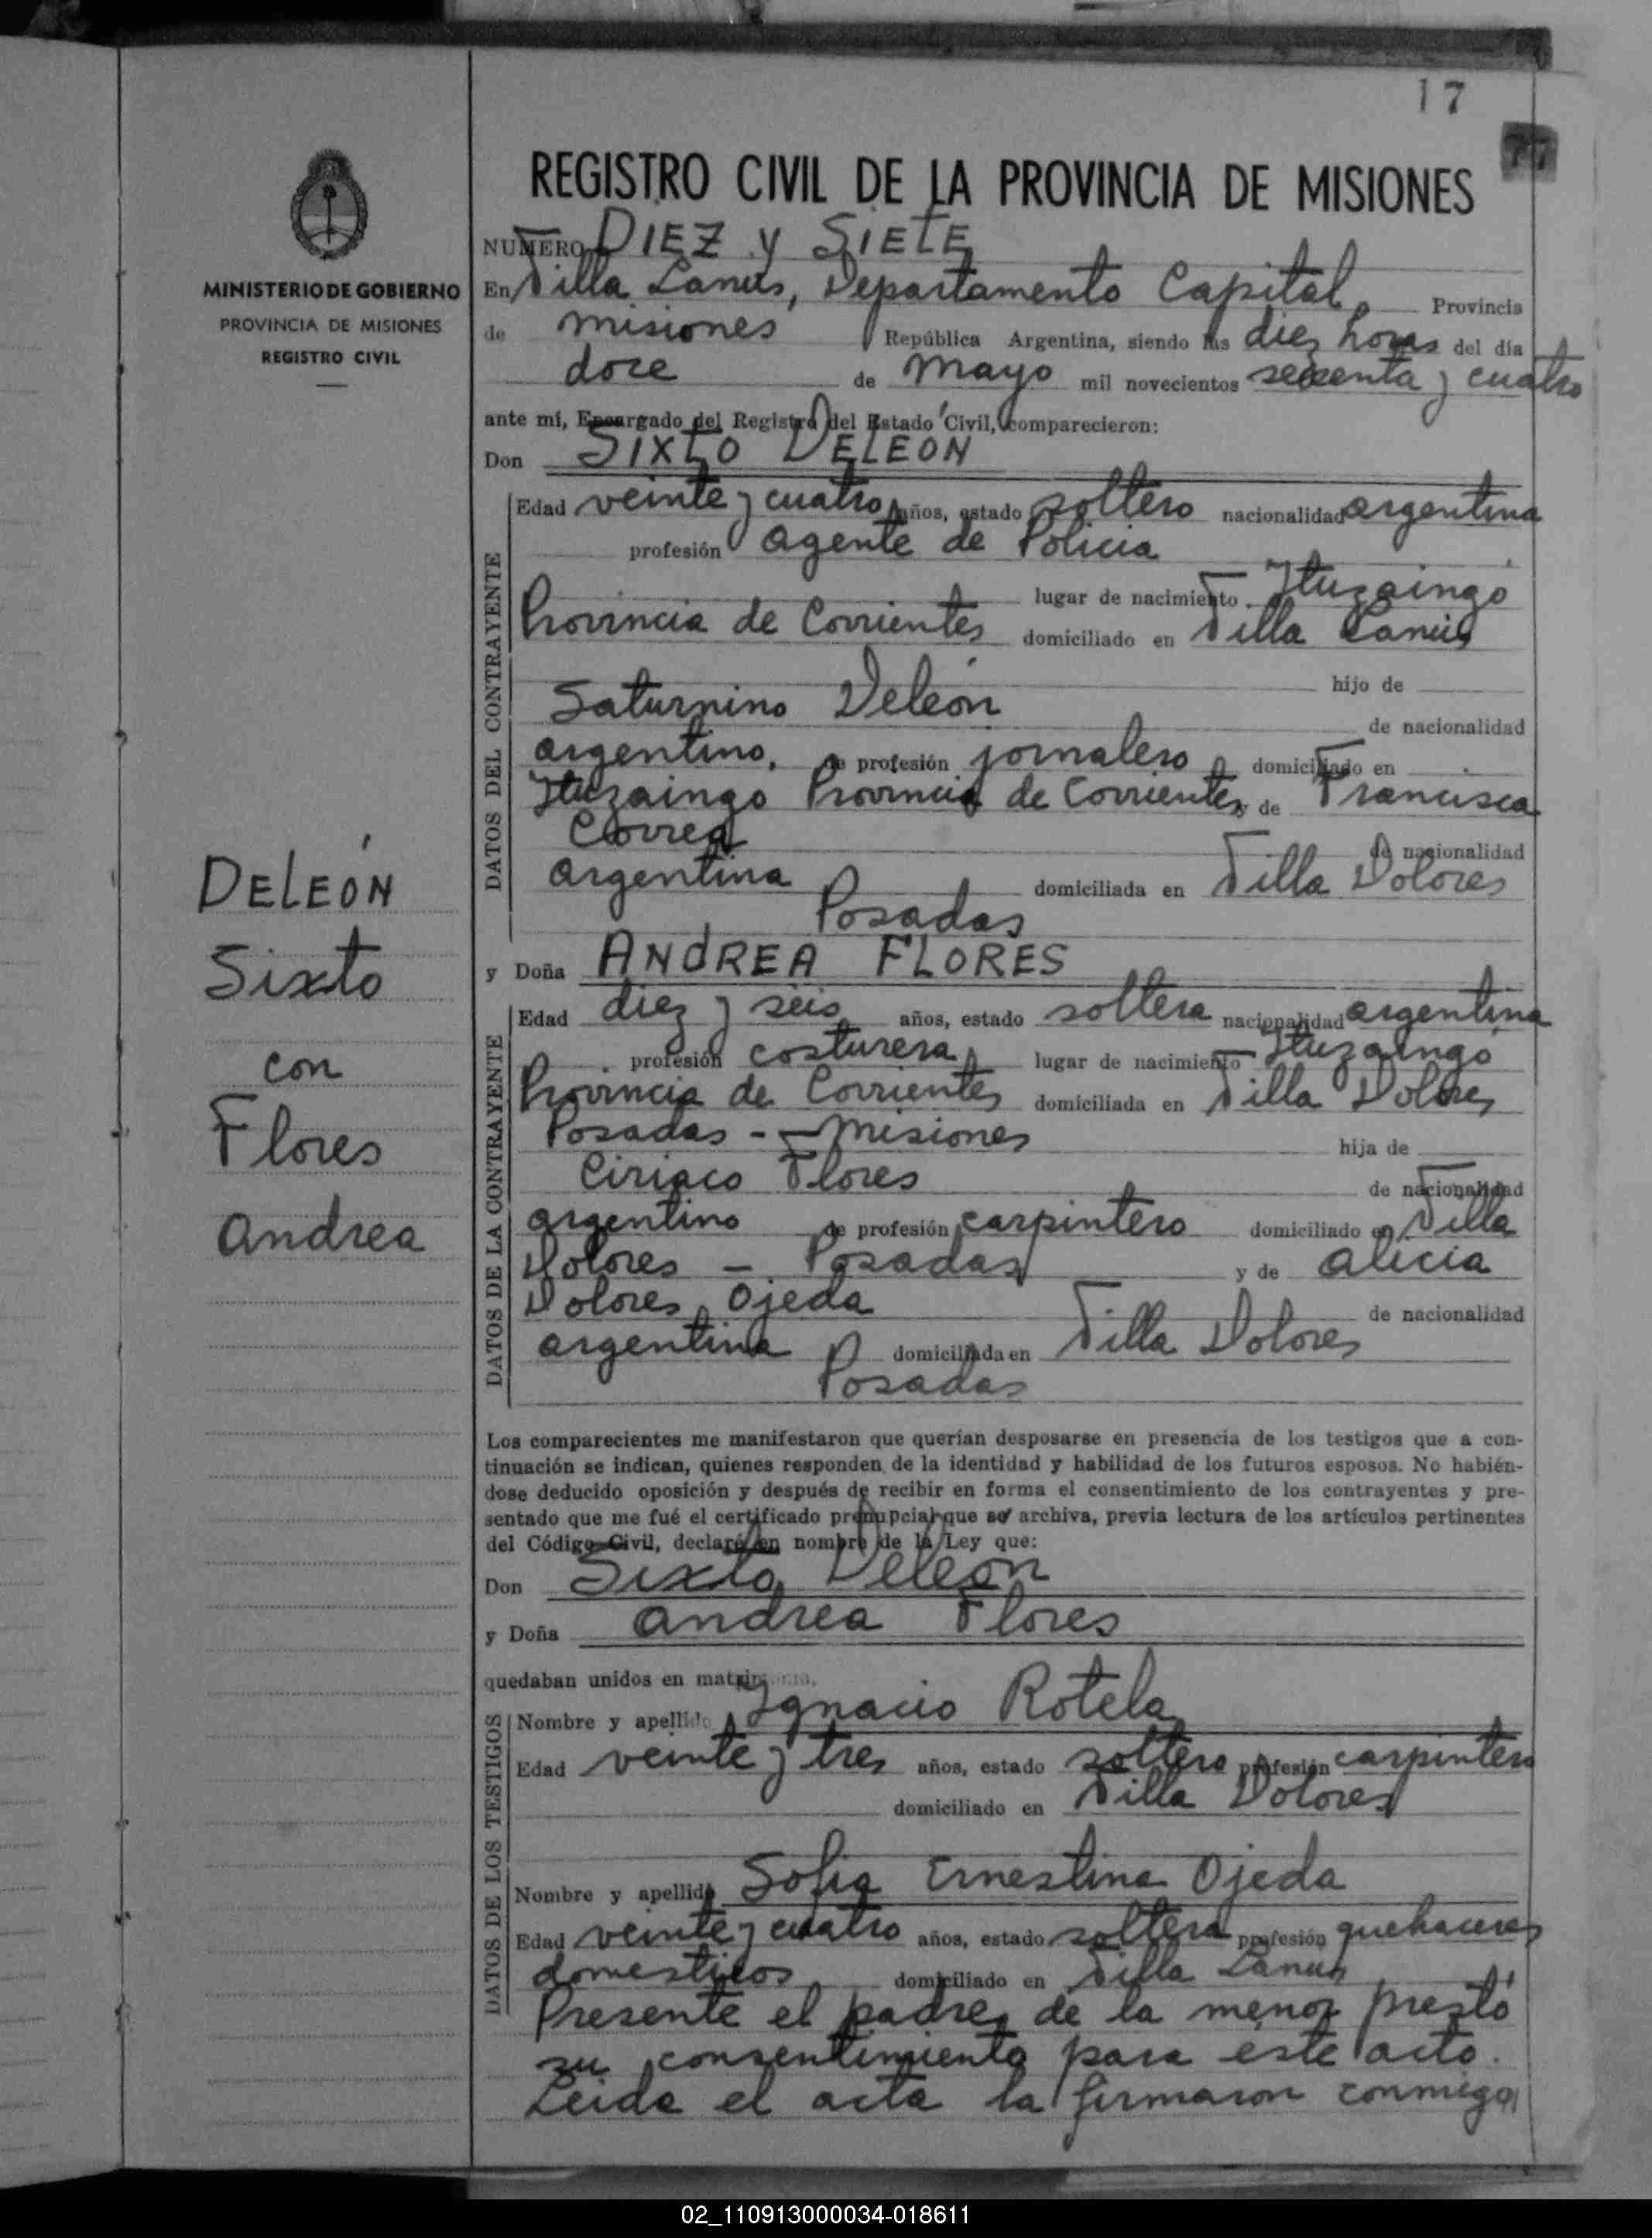 17
77
REGISTRO CIVIL DE LA PROVINCIA DE MISIONES
MINISTERIO DE GOBIERNO
PROVINCIA DE MISIONES
REGISTRO CIVIL
DELEÓN
Sixto
con
Flores
Andrea
NUMERO DIEZ y SIETE
En Villa Lanús, Departamento Capital Provincia
de Misiones República Argentina, siendo las diez horas del día
doce de Mayo mil novecientos sesenta y cuatro
ante mí, Encargado del Registro del Estado Civil, comparecieron:
Don SIXTO DELEON
DATOS DEL CONTRAYENTE
Edad veinte y cuatro años, estado soltero nacionalidad argentina
profesión Agente de Policia
lugar de nacimiento Ituzaingó
Provincia de Corrientes domiciliado en Villa Lanús
hijo de
Saturnino Deleón de nacionalidad
argentino, de profesión jornalero domiciliado en
Ituzaingo Provincia de Corrientes y de Francisca
Correa de nacionalidad
argentina domiciliada en Villa Dolores
Posadas
y Doña ANDREA FLORES
DATOS DE LA CONTRAYENTE
Edad diez y seis años, estado soltera nacionalidad argentina
profesión costurera lugar de nacimiento Ituzaingó
Provincia de Corrientes domiciliada en Villa Dolores
Posadas - Misiones hija de
Ciriaco Flores de nacionalidad
argentino de profesión carpintero domiciliado en Villa
Dolores - Posadas y de Alicia
Dolores Ojeda de nacionalidad
argentina domiciliada en Villa Dolores
Posadas
Los comparecientes me manifestaron que querían desposarse en presencia de los testigos que a con-
tinuación se indican, quienes responden de la identidad y habilidad de los futuros esposos. No habién-
dose deducido oposición y después de recibir en forma el consentimiento de los contrayentes y pre-
sentado que me fué el certificado prenupcial que se archiva, previa lectura de los artículos pertinentes
del Código Civil, declaré en nombre de la Ley que:
Don Sixto Deleón
y Doña Andrea Flores
quedaban unidos en matrimonio.
DATOS DE LOS TESTIGOS
Nombre y apellido Ignacio Rotela
Edad veinte y tres años, estado soltero profesión carpintero
domiciliado en Villa Dolores
Nombre y apellido Sofia Ernestina Ojeda
Edad veinte y cuatro años, estado soltera profesión quehaceres
domesticos domiciliado en Villa Lanus
Presente el padre de la menor prestó
su consentimiento para este acto.
Leida el acta la firmaron conmigo
02_110913000034-018611